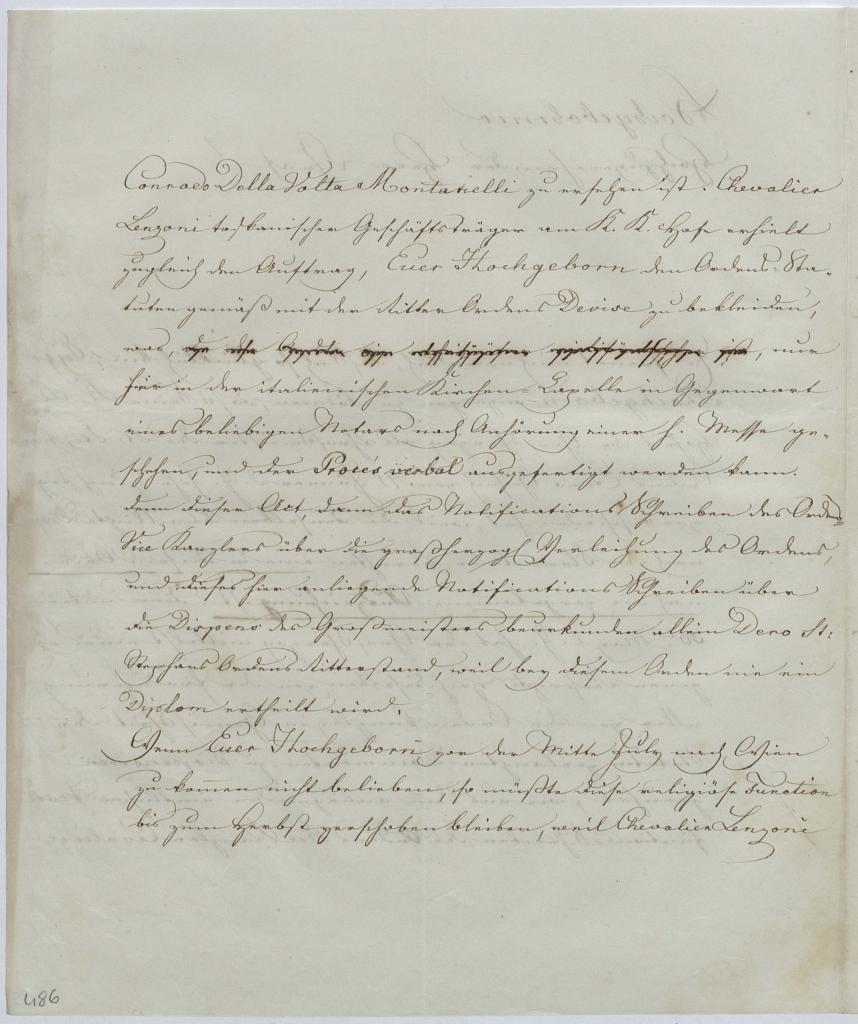 Conrado Della Volta Montanelli zu ersehen ist. Chevalier
Lenzoni toskanischer Geschäftsträger am K. K. Hofe erhielt
zugleich den Auftrag, Euer Hochgeborn den Ordens-Sta-
tuten gemäß mit der Ritter Ordens Devise zu bekleiden,
was, nur
hier in der italienischen Kirchen-Capelle in Gegenwart
eines beliebigen Notars nach Anhörung einer h. Messe ge-
schehen, und der Procés verbal ausgefertigt werden kann.
denn dieser Act, dann das Notifications Schreiben des Ordens
Vice Kanzlers über die großherzogl Verleihung des Ordens,
und dieses hier anliegende Notifications Schreiben über
die Dispens des Großmeisters beurkunden allein Dero St:
Stephans Ordens Ritterstand, weil bey diesem Orden nie ein
Diplom ertheilt wird.
Wenn Euer Hochgeborn vor der Mitte July nach Wien
zu kommen nicht belieben, so müßte diese religiöse Function
bis zum Herbst verschoben bleiben, weil Chevalier Lenzoni
486